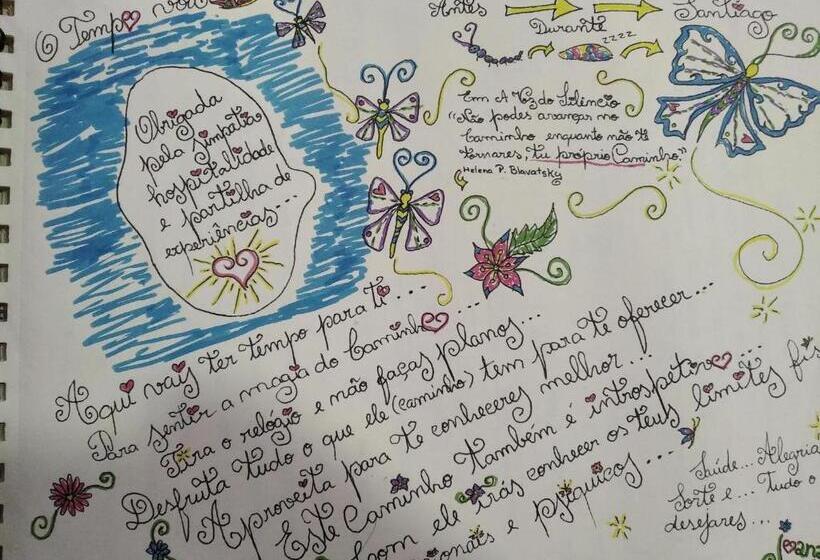 O Tempo voa
Antes
Durante
Santiago
zzzz
Obrigada
pela simpatia
hospitalidade
e partilha de
experiências...
Em A Voz do Silêncio
"Não podes avançar no
Caminho enquanto não te
tornares, tu próprio Caminho."
Helena P. Blavatsky
Aqui vais ter tempo para ti...
Para sentir a magia do Caminho
Tira o relógio e não faças planos...
Desfruta tudo o que ele (caminho) tem para te oferecer...
Aproveita para te conheceres melhor...
Este Caminho também é introspetivo...
Com ele irás conhecer os teus limites fís
ionais e psíquicos...
Saúde... Alegria
Sorte e... Tudo o
desejares...